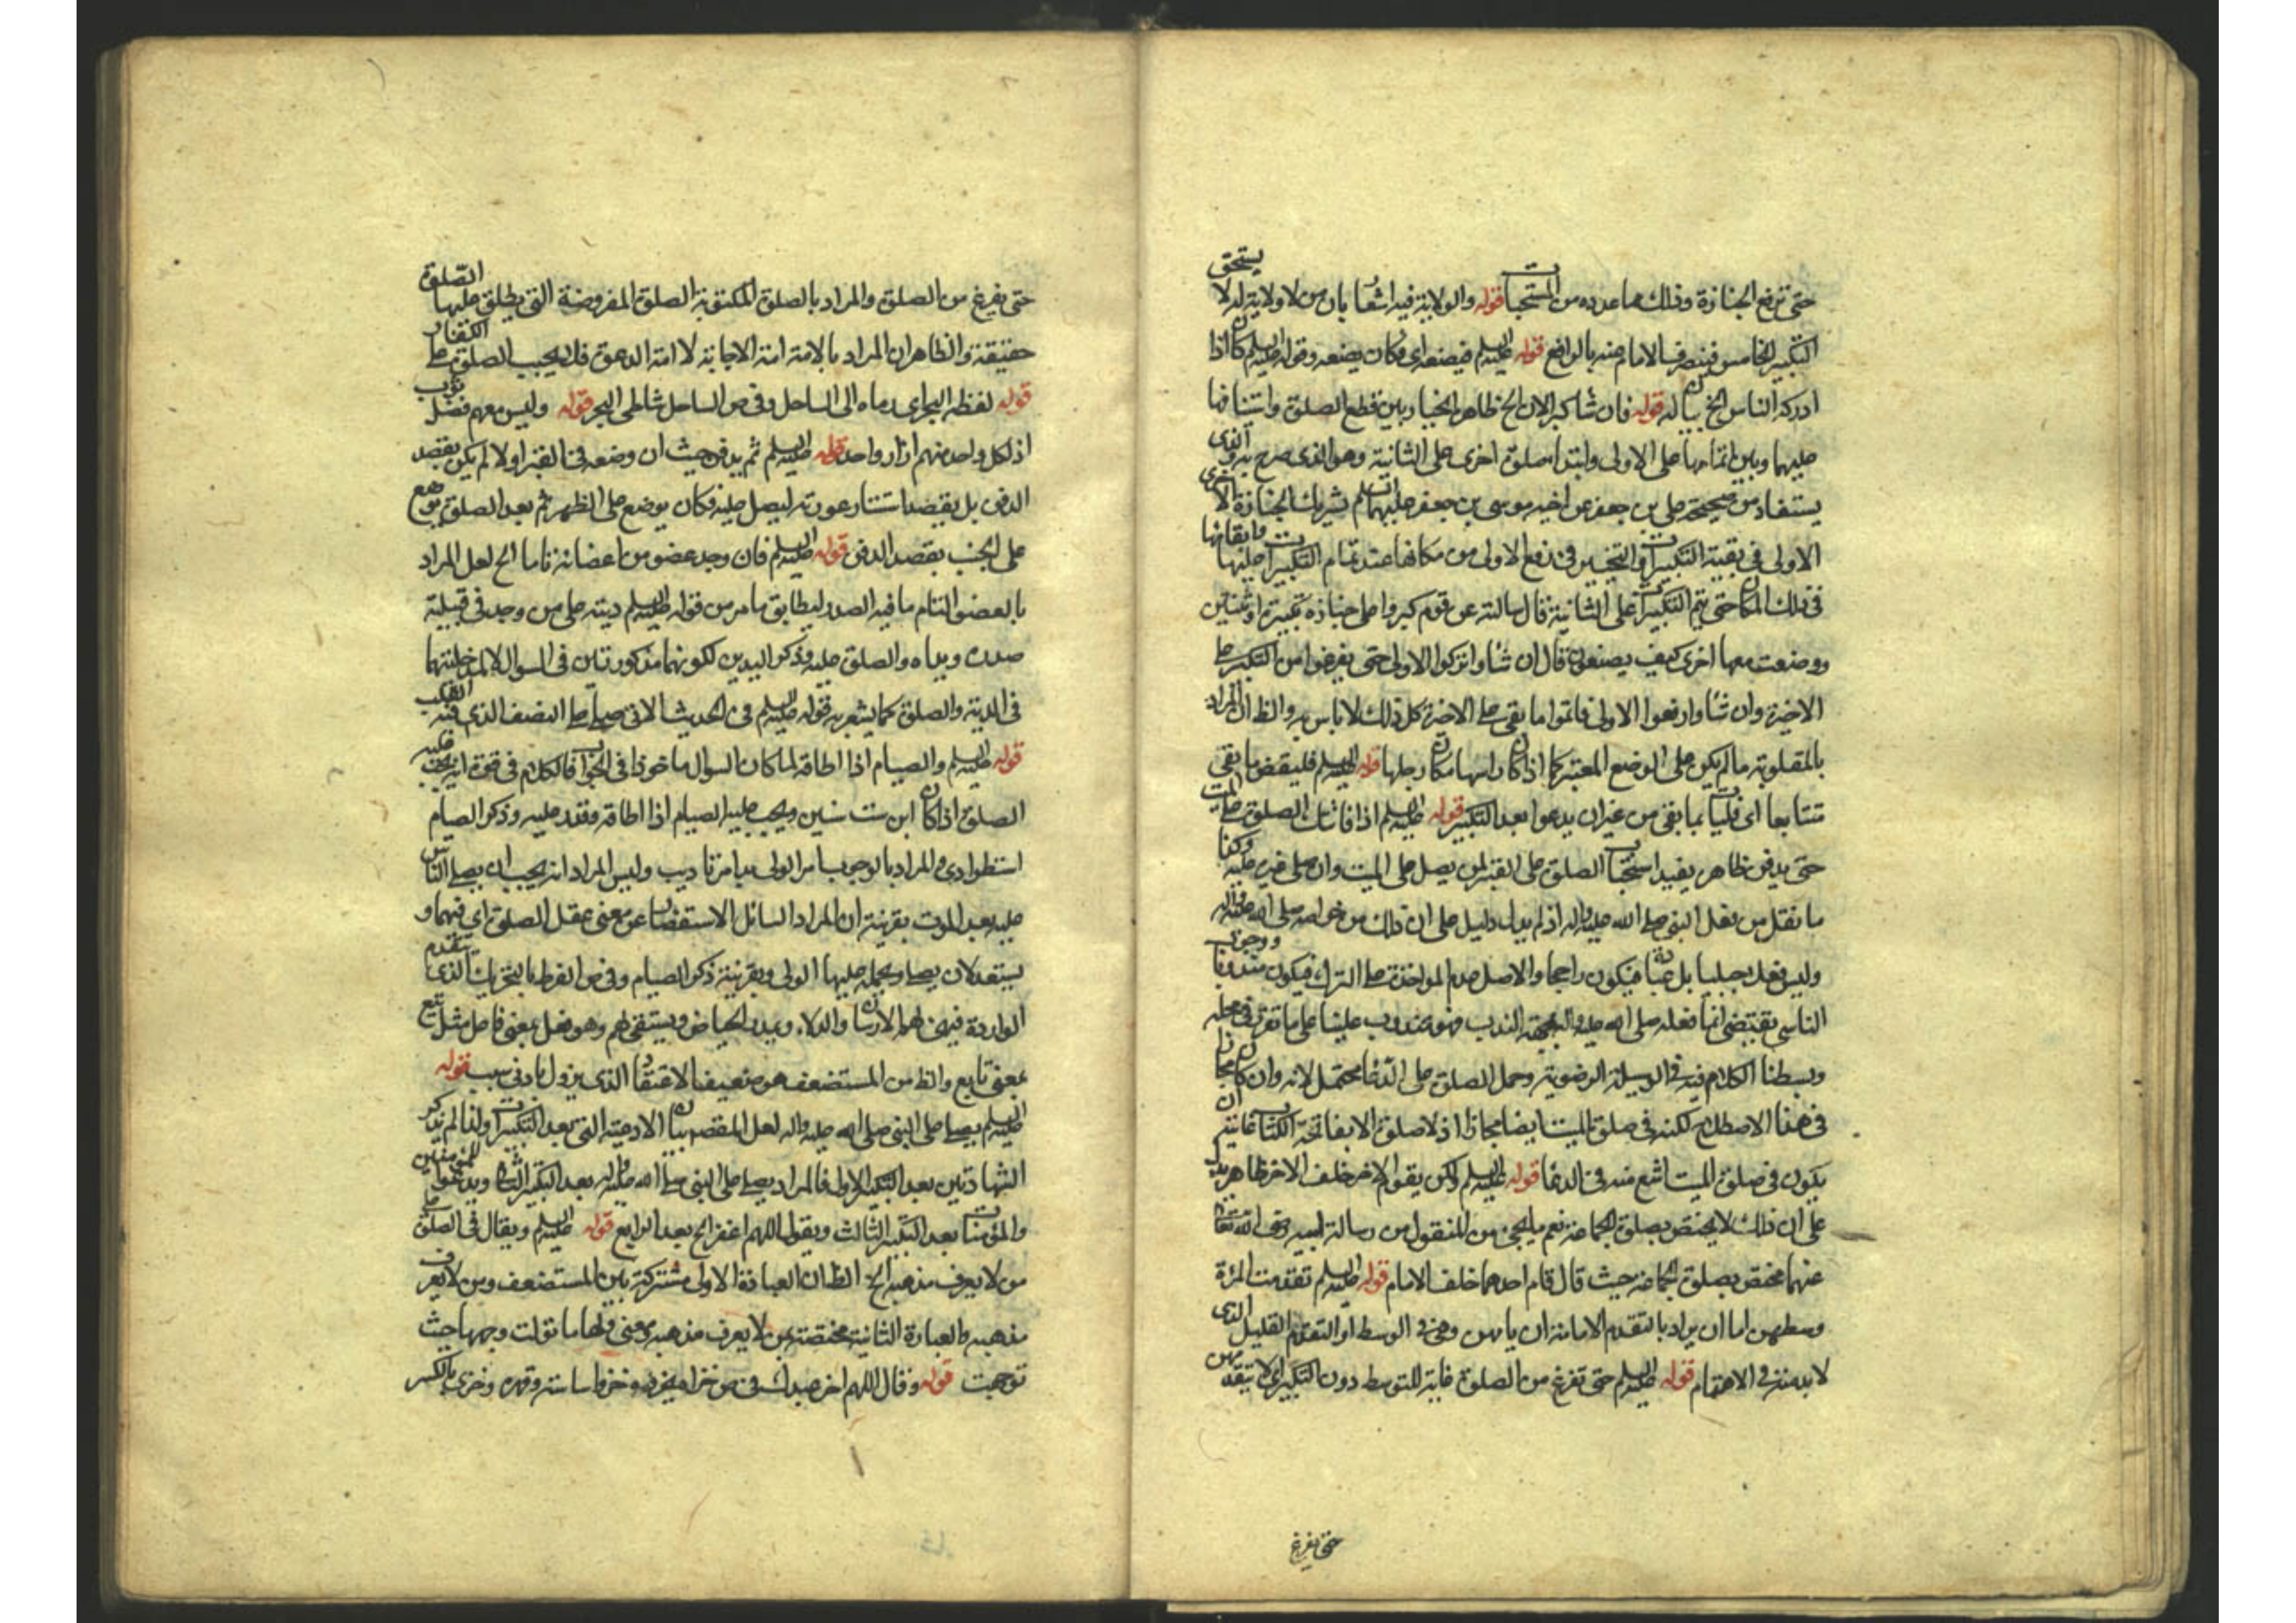 حتى ترفع الجنازة وذلك مما عدده من المستحبات قوله والولاية فيه اشعار بان من لا ولاية له لا يستحق
التكبير الخامس فينصرف الامام عنه بالرابع قوله عليه السلم فيصنعه اى فكان يصنعه وقوله عليه السلم كان اذا
ادركه الناس الخ بيان له قوله فان شاء كبر الان الخ ظاهره الخيار بين قطع الصلوة واستئنافها
عليهما وبين اتمامها على الاولى وابتداء صلوة اخرى على الثانية وهو الذى صرح به والذى
يستفاد من صحيحة على بن جعفر عن اخيه موسى بن جعفر عليهما السلم تشريك الجنازة الاخرى
الاولى فى بقية التكبيرات والتخيير فى رفع الاولى من مكانها عند تمام التكبيرات عليها وابقائها
فى ذلك المكان حتى يتم التكبيرات على الثانية قال سالته عن قوم كبروا على جنازة تكبيرة او ثنتين
ووضعت معها اخرى كيف يصنعون قال ان شاوا تركوا الاولى حتى يفرغوا من التكبير على
الاخيرة وان شاوا رفعوا الاولى فاتموا ما بقى على الاخيرة كل ذلك لا باس به والظ ان المراد
بالمقلوبة ما لم يكن على الوضع المعتبر كما اذا كان راسها مكان رجلها قوله عليه السلم فليقض ما بقى
متتابعا اى فليات بما بقى من غير ان يدعوا بعد التكبير قوله عليه السلم اذا فاتتك الصلوة على الميت
حتى يدفن ظاهره يفيد استحباب الصلوة على القبر لمن لم يصل على الميت وان صلى غيره عليه وكذا
ما نقل من فعل النبى صلى الله عليه واله اذ لم يدل دليل على ان ذلك من خواصه صلى الله عليه واله
وليس فعل جبليا بل عبادة فيكون راجحا والاصل عدم المواخذة على الترك فيكون مندوبا ووجوب
التاسى يقتضى انما فعله صلى الله عليه واله بجهة الندب فهو مندوب علينا على ما تقرر فى محله
وبسطنا الكلام فيه فى الوسيلة الرضوية وحمل الصلوة على الدعاء محتمل لانه وان كان مجازا
فى هذا الاصطلاح لكنه فى صلوة الميت ايضا مجاز اذ لا صلوة الا بفاتحة الكتاب غايته ان
يكون فى صلوة الميت اشيع منه فى الدعاء قوله عليه السلم ولكن يقوم الاخر خلف الاخر ظاهره يدل
على ان ذلك لا يختص بصلوة الجماعة نعم ما يجئ من المنقول من رسالة ابيه رضى الله تعالى
عنهما مختص بصلوة الجماعة حيث قال قام احدهما خلف الامام قوله عليه السلم تقدمت المرأة
وسطهن اما ان يراد بالتقدم الامامة ان يامهن وهى فى الوسط او التقدم القليل الذى
لا بد منه فى الاهتمام قوله عليه السلم حتى تفرغ من الصلوة غاية للتوسط دون التكبير اى لا تتقدمهن
حتى يفرغ
حتى يفرغ من الصلوة والمراد بالصلوة المكتوبة الصلوة المفروضة التى يطلق عليها الصلوة
حقيقة والظاهر ان المراد بالامة امة الاجابة لا امة الدعوة فلا يجب الصلوة على الكفار
قوله لفظه البحر اى رماه الى الساحل وفى ص الساحل شاطى البحر قوله وليس معهم فضل ثوب
اذ لكل واحد منهم ازار واحد قوله عليه السلم ثم يدفن حيث ان وضعه فى القبر اولا لم يكن بقصد
الدفن بل بقصد استتار عورته ليصلى عليه فكان يوضع على الظهر ثم بعد الصلوة يوضع
على الجنب بقصد الدفن قوله عليه السلم فان وجد عضو من اعضائه تاما الخ لعل المراد
بالعضو التام ما فيه الصدر ليطابق ما مر من قوله عليه السلم ديته على من وجد فى قبيلته
صدره ويداه والصلوة عليه وذكر اليدين لكونهما مذكورتين فى السوال لا لمدخليتهما
فى الدية والصلوة كما يشعر به قوله عليه السلم فى الحديث الاتى صلى على النصف الذى فيه القلب
قوله عليه السلم والصيام اذا اطاقه لما كان السوال ماخوذا فى الجواب فالكلام فى قوة انه يجب عليه
الصلوة اذا كان ابن ست سنين ويجب عليه الصيام اذا اطاقه وقدر عليه وذكر الصيام
استطرادى والمراد بالوجوب امر الولى به امر تاديب وليس المراد انه يجب ان يصلى الناس
عليه بعد الموت بقرينة ان المراد السائل الاستفضال عن معنى عقل الصلوة اى فهمها و
يستعد لان يصلى ويحمله عليها الولى وبقرينة ذكر الصيام وفى ص الفرط بالتحريك الذى يتقدم
الواردة فيهئ لهم الارسان والدلاء ويمدر الحياض ويستقى لهم وهو فعل بمعنى فاعل مثل تبع
بمعنى تابع والظ من المستضعف هو ضعيف الاعتقاد الذى يزول بادنى سبب قوله
عليه السلم يصلى على النبى صلى الله عليه واله لعل المقصد بيان الادعية التى بعد التكبيرات ولذا لم يذكر
الشهادتين بعد التكبير الاولى فالمراد يصلى على النبى صلى الله عليه واله بعد التكبير الثانى ويدعو للمؤمنين
والمؤمنات بعد التكبير الثالث ويقول اللهم اغفر الخ بعد الرابع قوله عليه السلم ويقال فى الصلوة على
من لا يعرف مذهبه الخ الظ ان العبارة الاولى مشتركة بين المستضعف ومن لا يعرف
مذهبه والعبارة الثانية مختصة بمن لا يعرف مذهبه ومعنى ولها ما تولت وجهها حيث
توجهت قوله وقال اللهم اخز عبدك فى ص خزاه يخزوه خزوا ساسه وقهره وخزى بالكسر